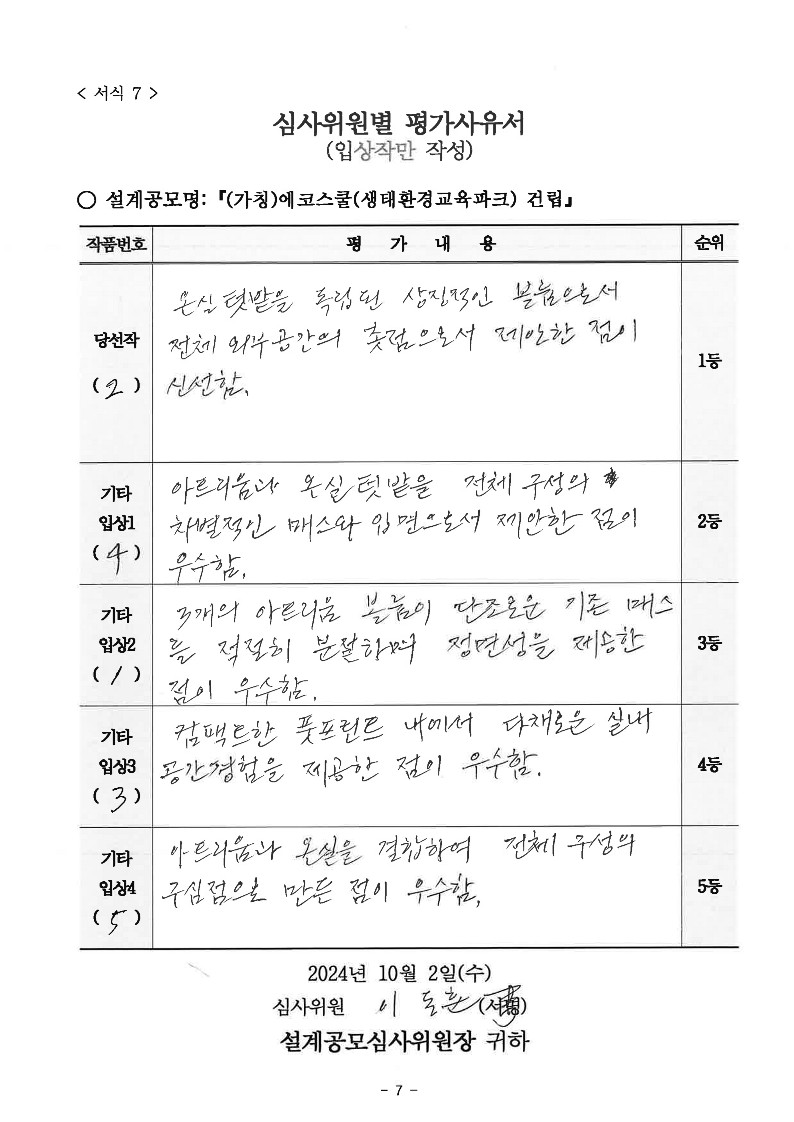 < 서식 7 >
심사위원별 평가사유서
(입상작만 작성)
○ 설계공모명: 『(가칭)에코스쿨(생태환경교육파크) 건립』
작품번호 평 가 내 용 순위
당선작
( 2 )
온실 텃밭을 독립된 상징적인 볼륨으로서
전체 외부공간의 촛점으로서 제안한 점이
신선함.
1등
기타
입상1
( 4 )
아트리움과 온실텃밭을 전체 구성의
차별적인 매스와 입면으로서 제안한 점이
우수함.
2등
기타
입상2
( 1 )
3개의 아트리움 볼륨이 단조로운 기존 매스
를 적절히 분절하며 정면성을 제공한
점이 우수함.
3등
기타
입상3
( 3 )
컴팩트한 풋프린트 내에서 다채로운 실내
공간경험을 제공한 점이 우수함.
4등
기타
입상4
( 5 )
아트리움과 온실을 결합하여 전체 구성의
구심점으로 만든 점이 우수함.
5등
2024년 10월 2일(수)
심사위원 이 도훈 (서명)
설계공모심사위원장 귀하
- 7 -